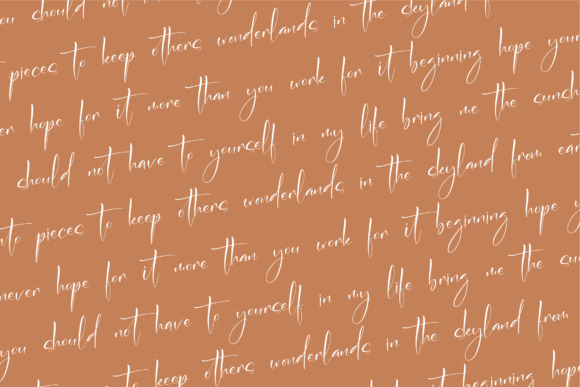 you should not
pieces to keep others wonderlands in the skyland
hope for it more than you work for it beginning hope your
should not have to yourself in my life bring me the sunsh
to pieces to keep others wonderlands in the skyland from ear
never hope for it more than you work for it beginning hope y
you should not have to yourself in my life bring me the sun
to keep others wonderlands in the skyland from
it beginning hope